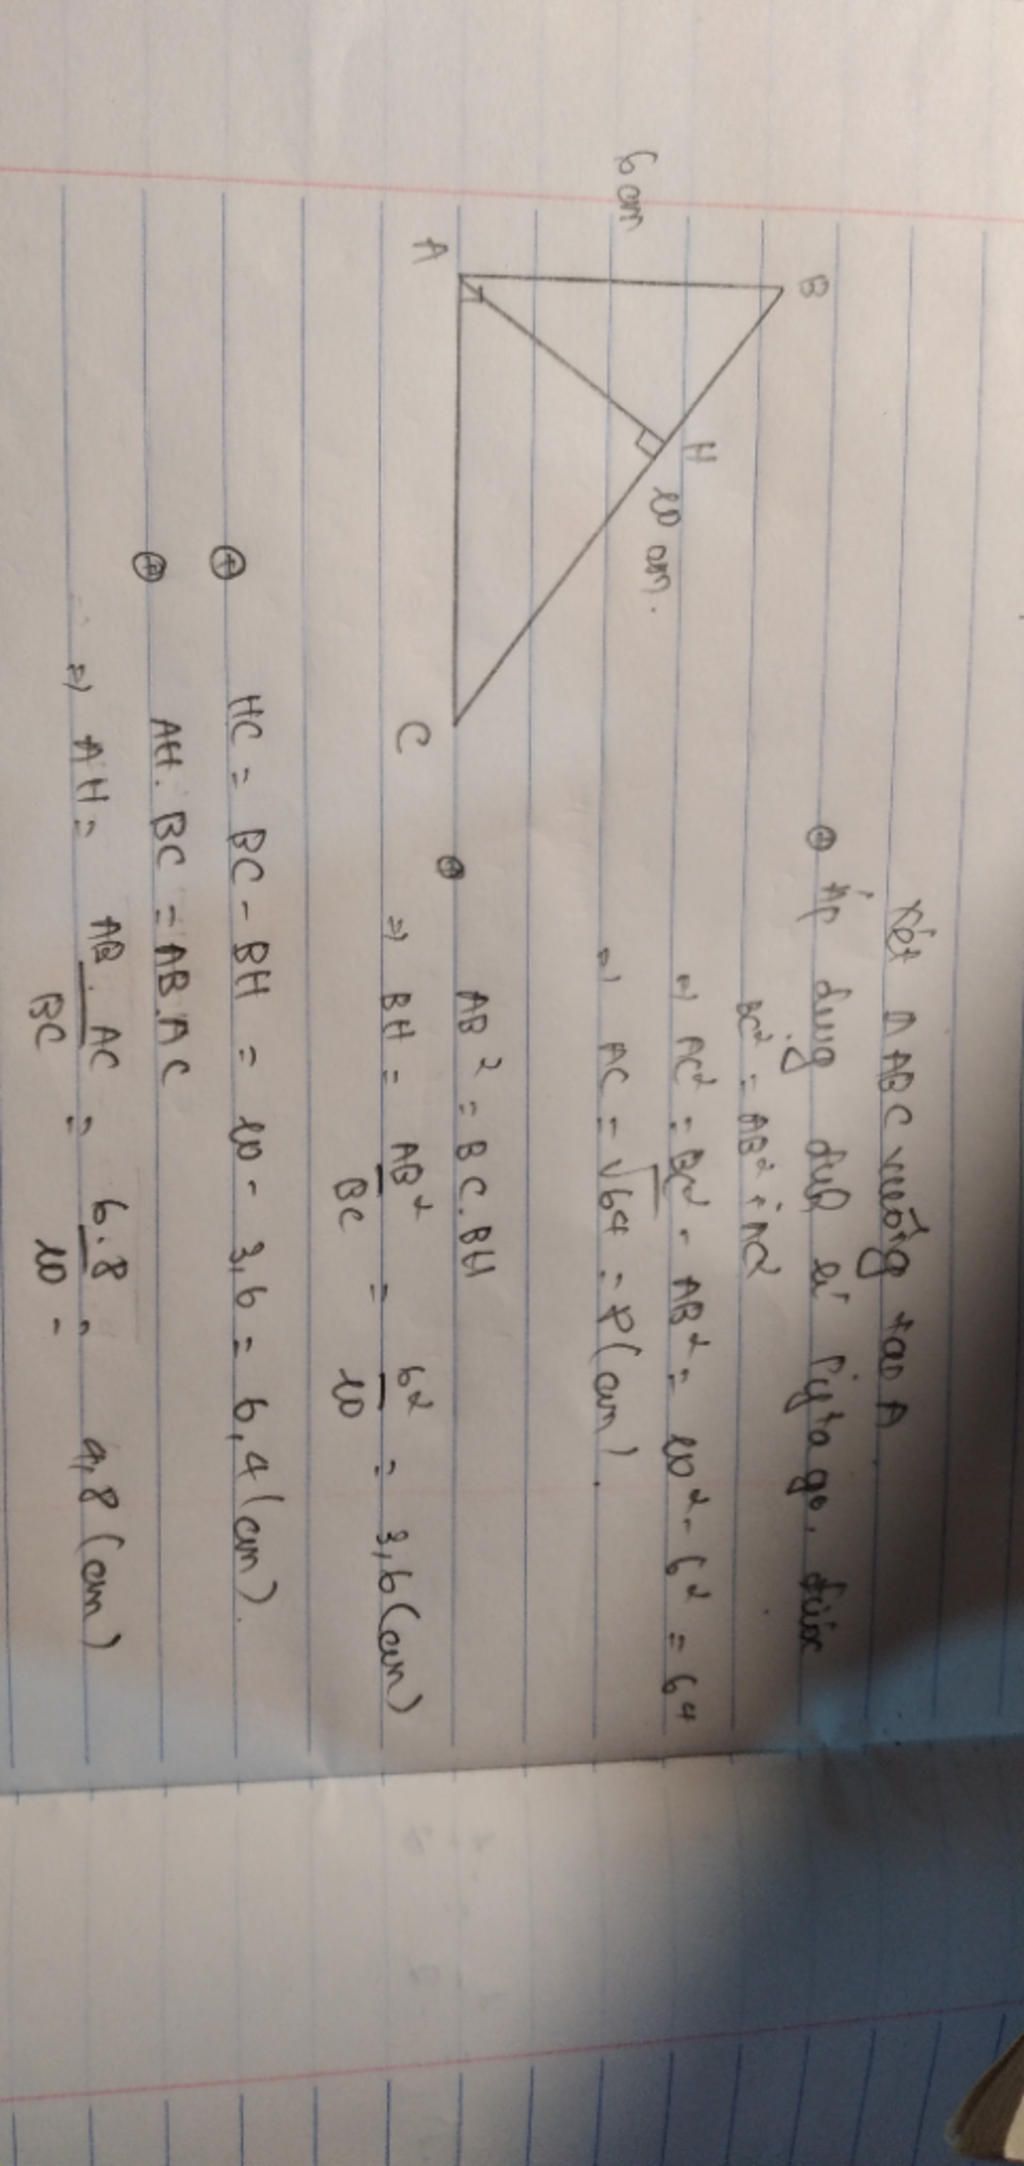 Xét Δ ABC vuông tại A
⊕ Áp dụng định lí Pytago, được
BC² = AB² + AC²
=> AC² = BC² - AB² = 10² - 6² = 64
=> AC = √64 = 8 (cm).
B
6 cm
H
10 cm.
A
C
⊕ AB² = BC.BH
=> BH = AB²/BC = 6²/10 = 3,6 (cm)
⊕ HC = BC - BH = 10 - 3,6 = 6,4 (cm).
⊕ AH. BC = AB.AC
=> AH = AB. AC/BC = 6.8/10 = 4,8 (cm)